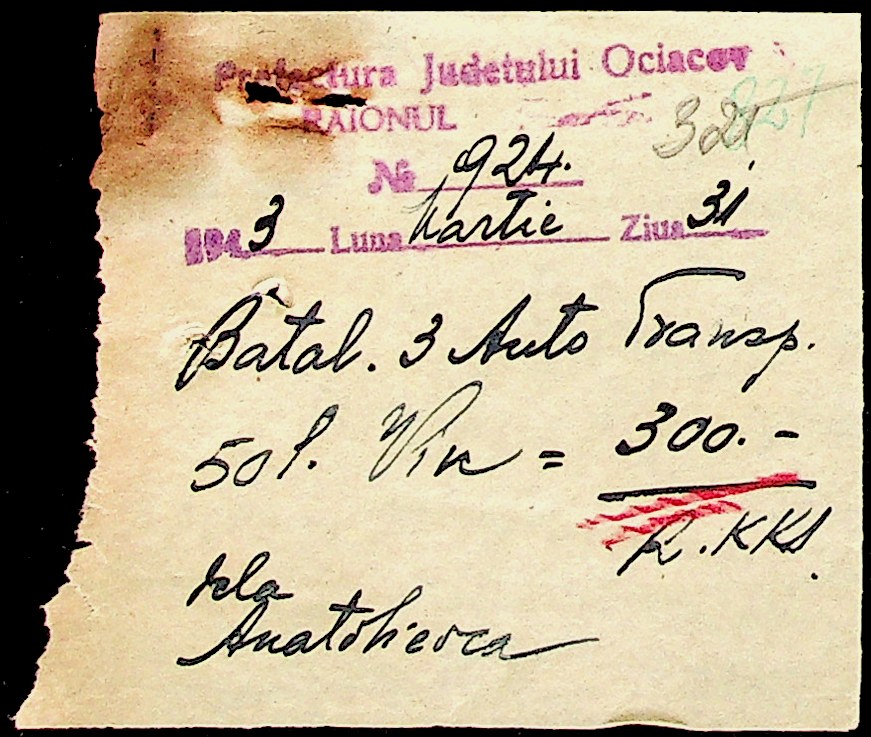 Prefectura Judetului Ociacov
RAIONUL
321 327
№ 924.
1943 Luna Martie Ziua 31
Batal. 3 Auto Transp.
50 l. Vin = 300.-
R.KKS.
dela
Anatolievca